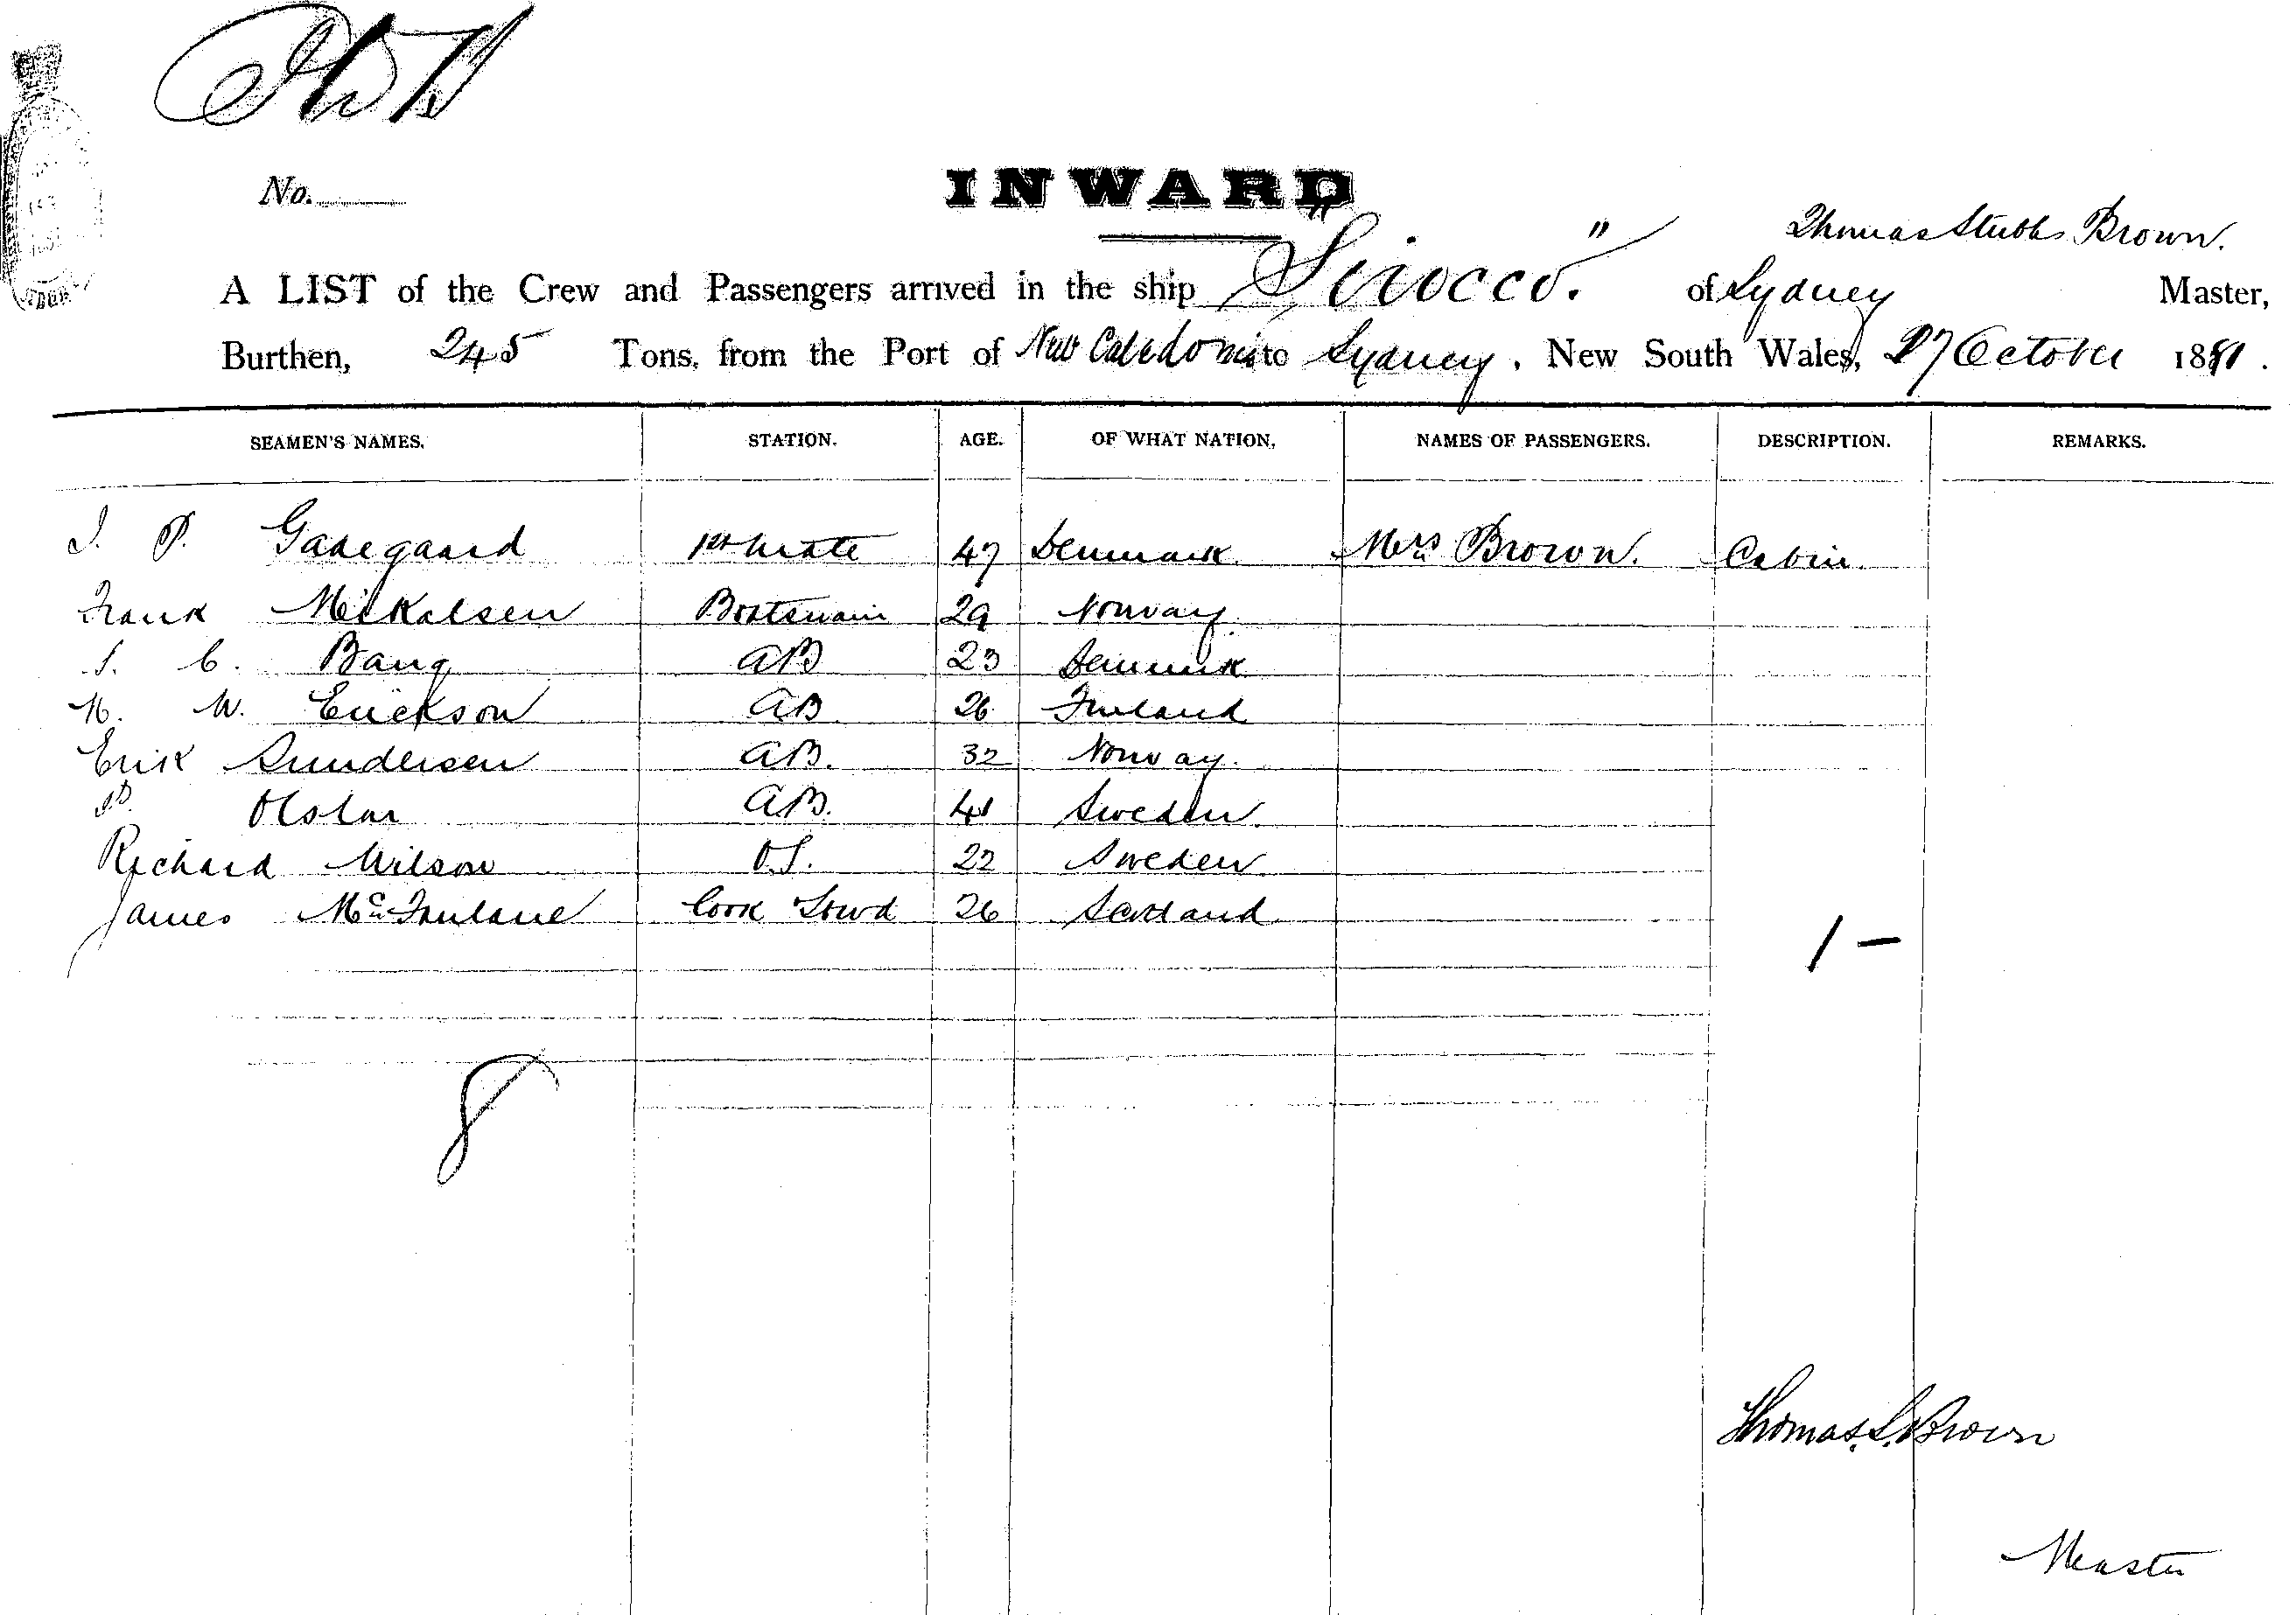 No.
INWARD
Thomas Stubbs Brown.
A LIST of the Crew and Passengers arrived in the ship "Sirocco." of Sydney Master,
Burthen, 245 Tons, from the Port of New Caledonia to Sydney, New South Wales, 27 October 1881.
SEAMEN'S NAMES. STATION. AGE. OF WHAT NATION. NAMES OF PASSENGERS. DESCRIPTION. REMARKS.
J. P. Gadegaard 1st Mate 47 Denmark Mrs Brown. Cabin.
Frank Mikalsen Boatswain 29 Norway.
J. C. Bang AB 23 Denmark
N. W. Erickson AB 26 Finland
Erik Gundersen AB. 32 Norway.
AB. 41 Sweden.
Richard Wilson O.S. 22 Sweden.
James McFarlane Cook Stwd 26 Scotland.
1 -
8
Thomas. S. Brown
Master